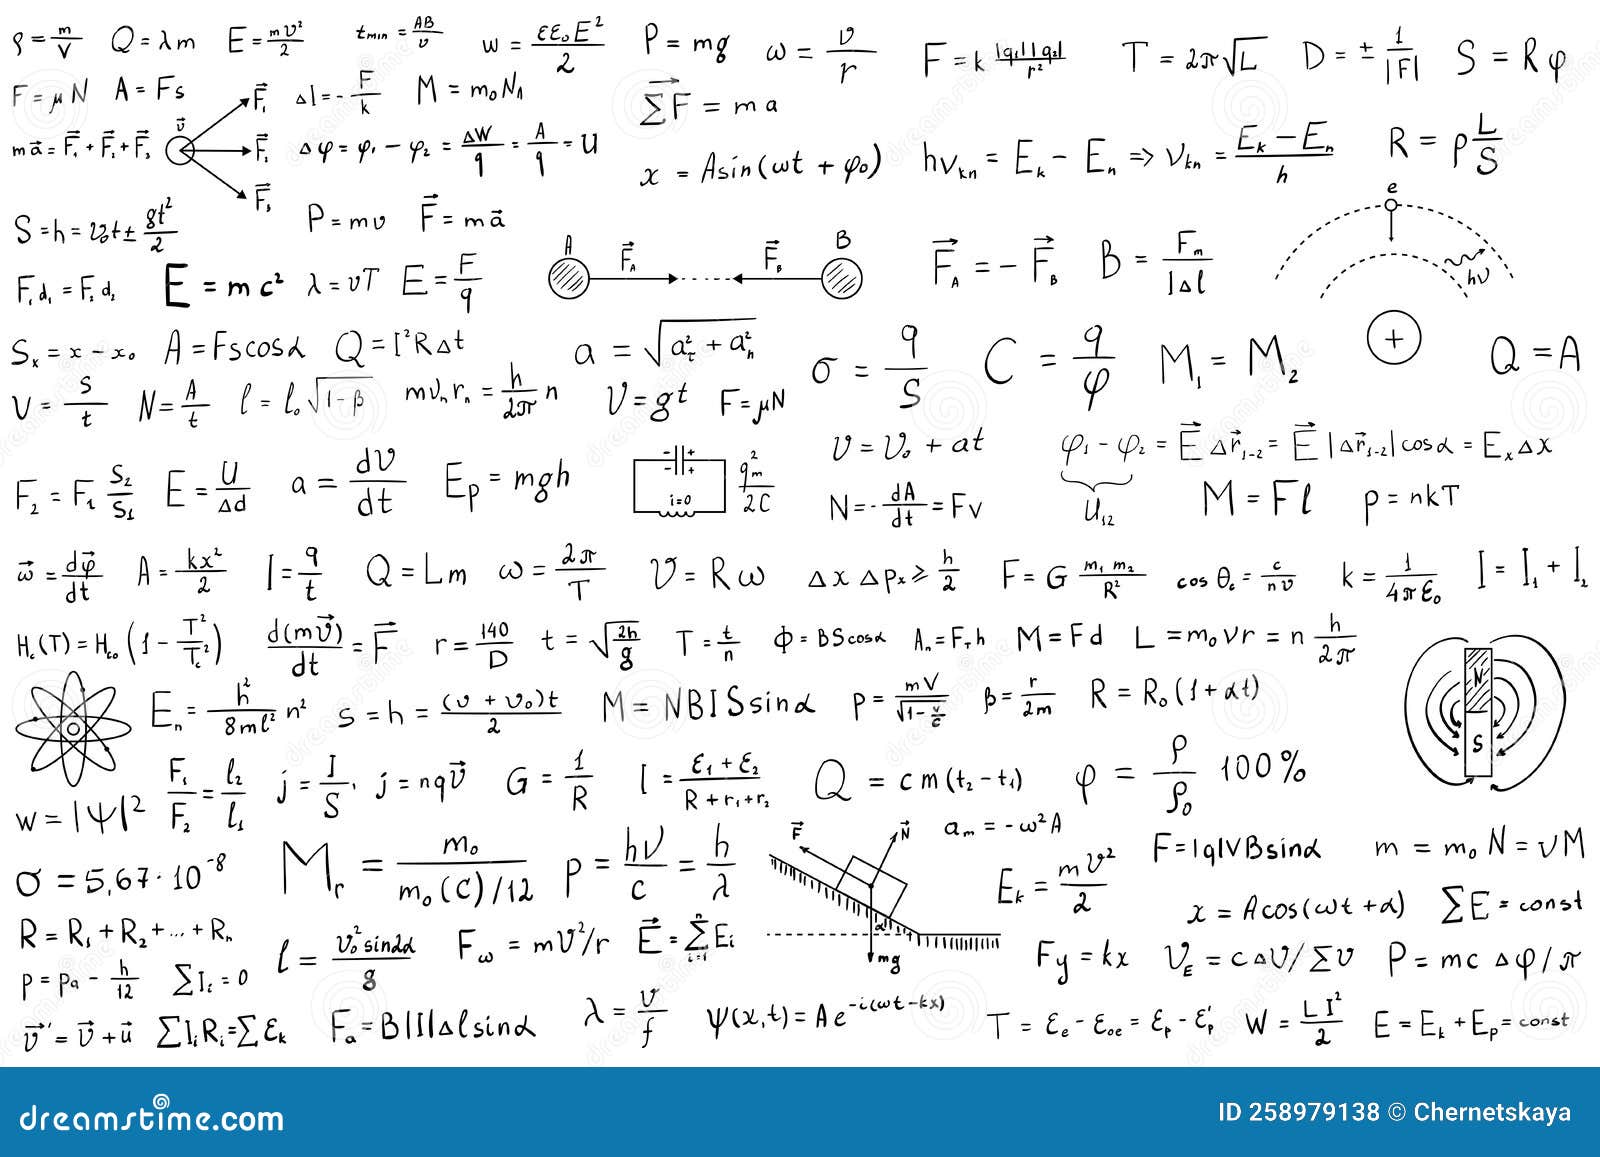 ρ = m/V   Q = λm   E = mυ²/2   t min = AB/υ   w = εε₀E²/2   P = mg   ω = υ/r   F = k |q₁||q₂|/r²   T = 2π√L   D = ± 1/|F|   S = Rφ
F = μN   A = Fs   F⃗₁   Δl = - F/k   M = m₀N₁   ΣF⃗ = ma
ma⃗ = F⃗₁ + F⃗₂ + F⃗₃   υ⃗   F⃗₂   Δφ = φ₁ - φ₂ = ΔW/q = A/q = U   x = Asin(ωt + φ₀)   hνkn = Ek - En => νkn = Ek - En/h   R = ρ L/S
F⃗₃   e
S = h = υ₀t ± gt²/2   P = mυ   F⃗ = ma⃗   A   F⃗A   F⃗B   B   F⃗A = - F⃗B   B = Fm/IΔl   hν
F₁d₁ = F₂d₂   E = mc²   λ = υT   E = F/q
Sx = x - x₀   A = Fscosα   Q = I²RΔt   a = √a²τ + a²n   σ = q/S   C = q/φ   M₁ = M₂   +   Q = A
υ = s/t   N = A/t   l = l₀√1-β   mυnrn = h/2π n   υ = gt   F = μN
υ = υ₀ + at   φ₁ - φ₂ = E⃗ Δr⃗₁₋₂ = E⃗ |Δr⃗₁₋₂| cosα = ExΔx
F₂ = F₁ S₂/S₁   E = U/Δd   a = dυ/dt   Ep = mgh   - + - +   i=0   q²m/2C   N = - dA/dt = Fv   U₁₂   M = Fl   p = nkT
ω⃗ = dφ⃗/dt   A = kx²/2   I = q/t   Q = Lm   ω = 2π/T   υ = Rω   Δx Δpx ≥ h/2   F = G m₁m₂/R²   cos θc = c/nυ   k = 1/4πε₀   I = I₁ + I₂
Hc(T) = Hc₀(1 - T²/Tc²)   d(mυ⃗)/dt = F⃗   r = 140/D   t = √2h/g   T = t/n   Φ = BScosα   An = FTh   M = Fd   L = m₀νr = n h/2π
En = h²/8ml² n²   s = h = (υ + υ₀)t/2   M = NBISsinα   p = mV/√1-v/c   β = r/2m   R = R₀(1+αt)   N
F₁/F₂ = l₂/l₁   j = I/S   j = nqυ⃗   G = 1/R   I = ε₁ + ε₂/R+r₁+r₂   Q = cm(t₂ - t₁)   φ = ρ/ρ₀ 100%   S
w = |Ψ|²   F⃗   N⃗   am = -ω²A
σ = 5,67·10⁻⁸   Mr = m₀/m₀(C)/12   p = hν/c = h/λ   α   Ek = mυ²/2   F = |q|VBsinα   m = m₀N = νM
x = Acos(ωt + α)   ΣE = const
R = R₁ + R₂ + ... + Rn   l = υ₀²sin2α/g   Fω = mυ²/r   E⃗ = Σⁿi=1 Ei   mg   Fy = kx   υE = cΔυ/Συ   P = mcΔφ/π
p = pa - h/12   ΣIi = 0
υ⃗' = υ⃗ + u⃗   ΣIiRi = Σεk   Fa = B|I|Δlsinα   λ = υ/f   ψ(x,t) = Ae^-i(ωt-kx)   T = εe - εoe = εp - ε'p   W = LI²/2   E = Ek + Ep = const
dreamstime.com
ID 258979138 © Chernetskaya